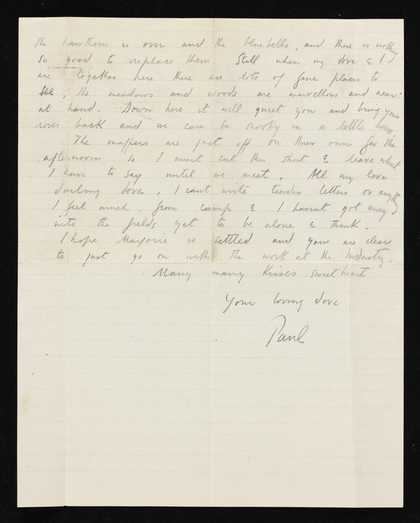 the hawthorn is over and the bluebells, and there is nothing
so good to replace them. Still when my dove & I
are together here there are lots of fine places to
see, the meadows and woods are marvellous and near
at hand. Down here it will quiet you and bring your
roses back and we can be in a little
The are just off on their own for the
afternoon so I must cut this short & leave what
I have to say until we meet. All my love
darling dove, I cant write tender letters or anything
I feel much from camp & I havent got away
into the fields yet to be alone & think.
I hope Marjorie is settled and you are clear
to just go on with the work at the Ministry.
Many many kisses sweetheart
Your loving dove
Paul